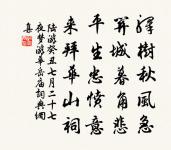 驛樹秋風急
關城暮角悲
平生忠憤意
來拜華山祠
陸游癸丑七月二十七
夜夢游華岳庙詞典網